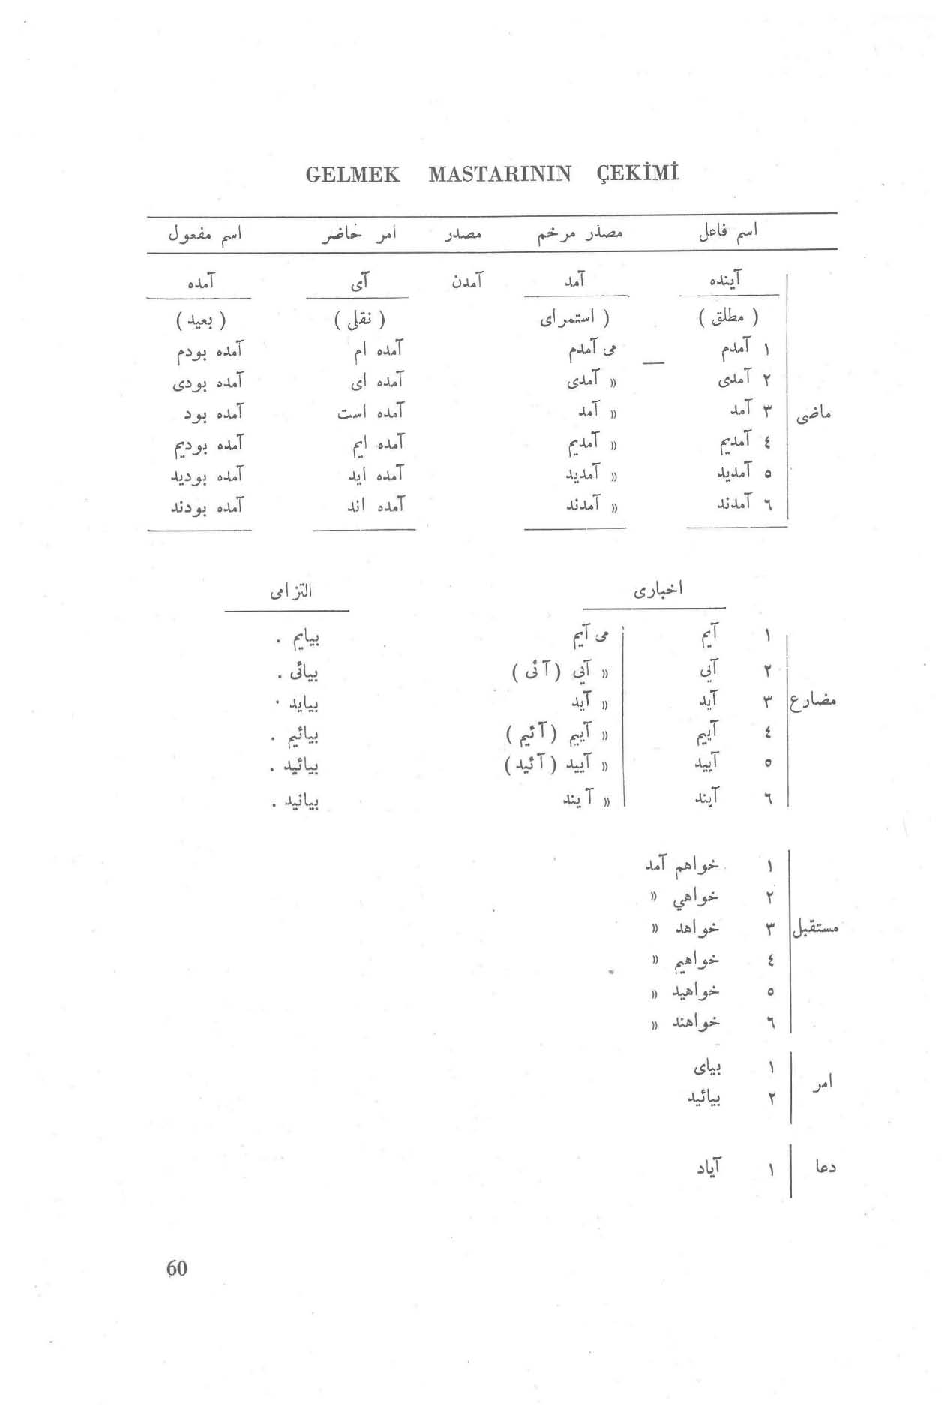 GELMEK MASTARININ ÇEKİMİ
اسم فاعل مصدر مرخم مصدر امر حاضر اسم مفعول
آینده آمد آمدن آی آمده
( مطلق ) ( استمرای ( نقلی ) ( بعید )
١ آمدم — می آمدم آمده ام آمده بودم
٢ آمدی « آمدی آمده ای آمده بودی
ماضی ٣ آمد « آمد آمده است آمده بود
٤ آمدیم « آمدیم آمده ایم آمده بودیم
٥ آمدید « آمدید آمده اید آمده بودید
٦ آمدند « آمدند آمده اند آمده بودند
اخباری التزامی
١ آیم می آیم بیایم .
٢ آیی « آیی (آئی ) بیائی .
مضارع ٣ آید « آید بیاید .
٤ آییم « آییم (آئیم ) بیائیم .
٥ آیید « آیید (آئید ) بیائید .
٦ آیند « آیند بیانید .
١ خواهم آمد
٢ خواهي «
مستقبل ٣ خواهد «
٤ خواهیم «
٥ خواهید «
٦ خواهند «
١ بیای
امر
٢ بیائید
دعا ١ آیاد
60